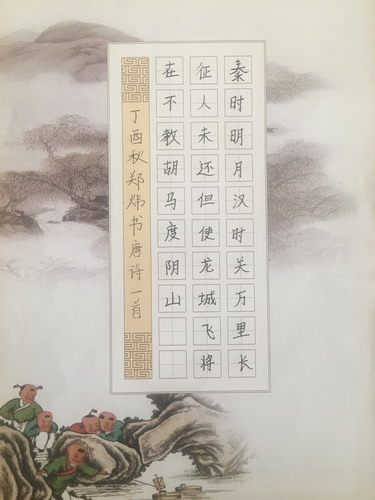 秦时明月汉时关万里长
征人未还但使龙城飞将
在不教胡马度阴山
丁酉秋郑炜书唐诗一首